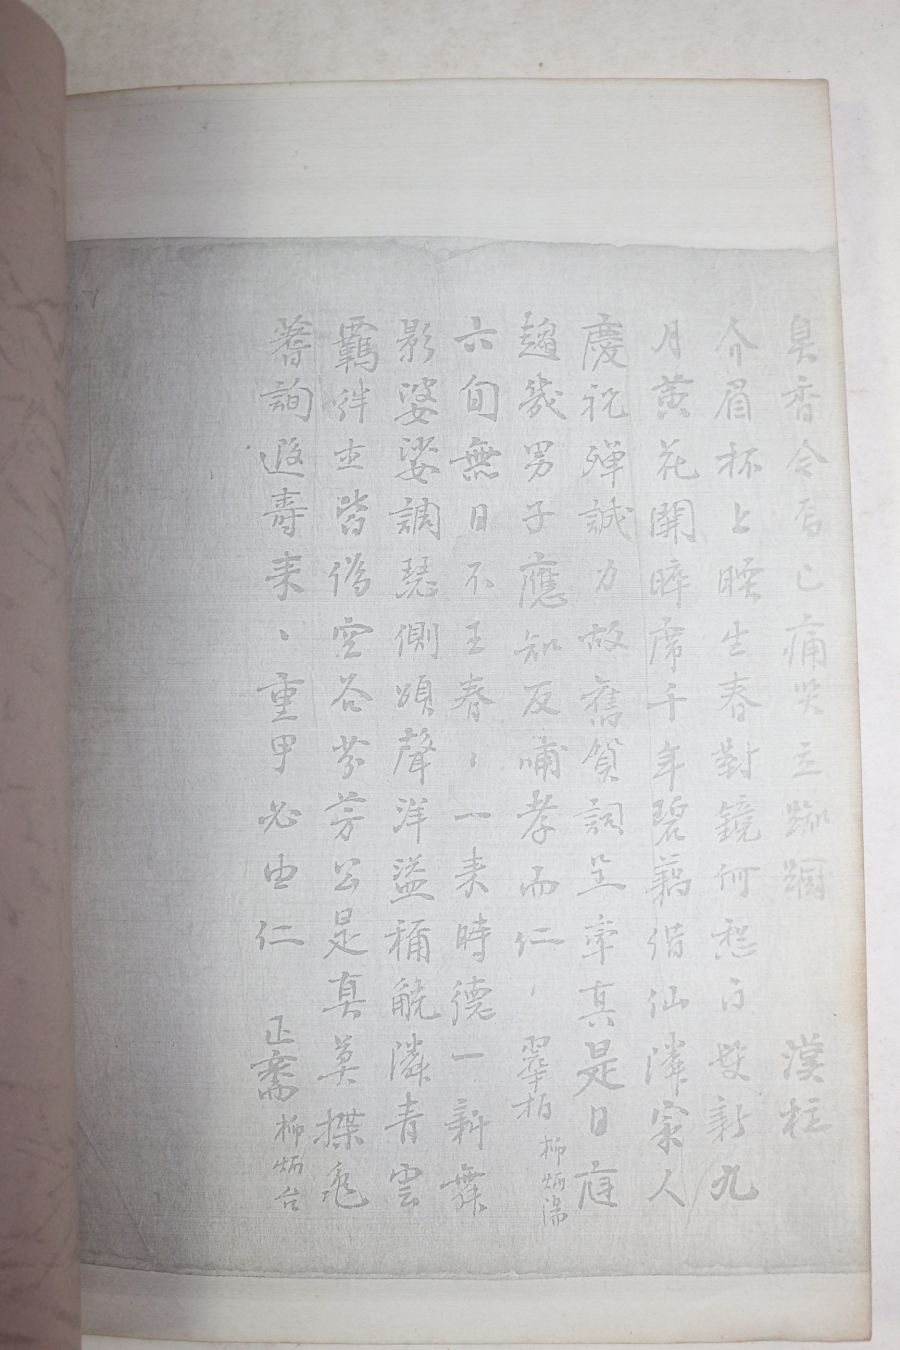 臭香今忽已痛哭立踟躕 漢柱
介眉杯上曉生春對鏡何愁白髮新九
月黃花開晬席千年碧藕借仙隣家人
慶祝殫誠力故舊賀詞呈率真是日庭
趨幾男子應知反哺孝而仁、翠柏 柳炳灟
六旬無日不王春、一來時德一新舞
影婆娑調瑟側頌聲洋溢稱觥隣青雲
羈絆世皆偽空谷芬芳公是真莫揲龜
蓍詢遐壽來、重甲必由仁 正齋 柳炳台